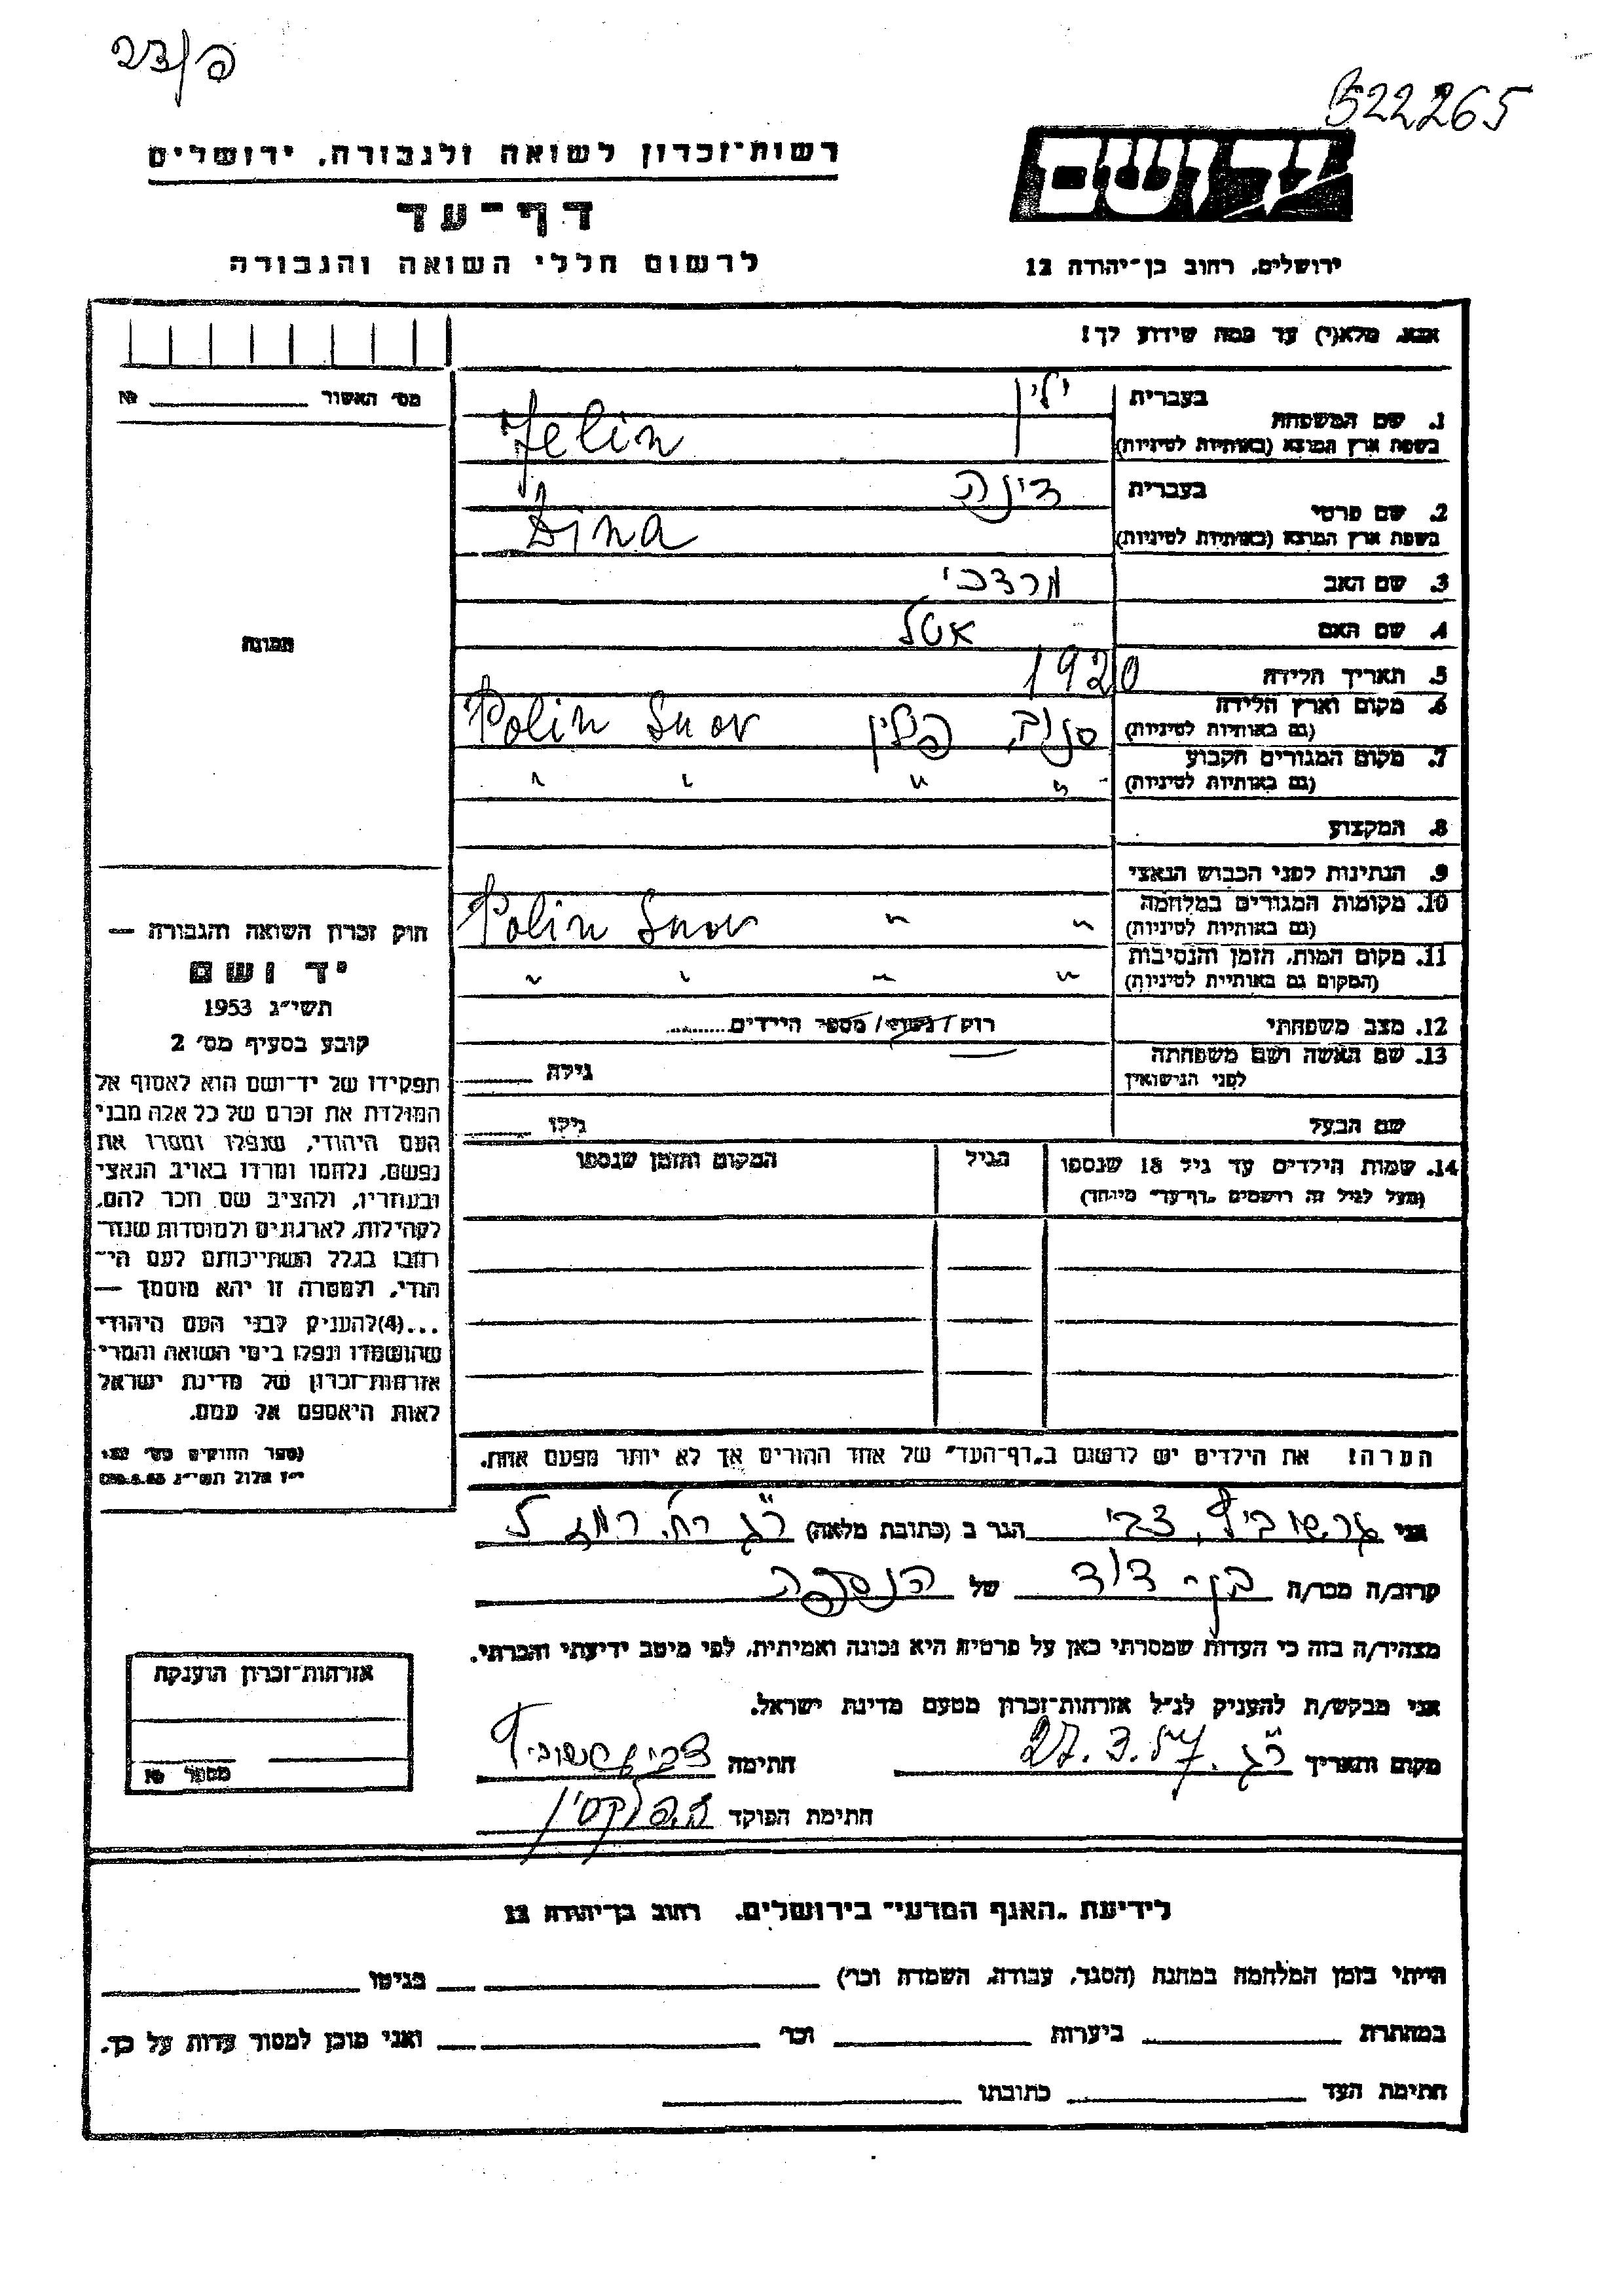 פ/דצ
522265
רשות־זכרון לשואה ולגבורה, ירושלים
יד ושם
דף־עד
לרשום חללי השואה והגבורה
ירושלים, רחוב בן־יהודה 12
אנא, מלא(י) עד כמה שידוע לך!
מס׳ האשור № ________
1. שם המשפחה
בעברית ילין
בשפת ארץ המוצא (באותיות לטיניות) Jelin
2. שם פרטי
בעברית דינה
בשפת ארץ המוצא (באותיות לטיניות) Dina
3. שם האב מרדכי
4. שם האם אטל
5. תאריך הלידה 1920
6. מקום וארץ הלידה (גם באותיות לטיניות) סנוב, פולין Polin Snov
7. מקום המגורים הקבוע (גם באותיות לטיניות) " " " "
8. המקצוע
9. הנתינות לפני הכבוש הנאצי
10. מקומות המגורים במלחמה (גם באותיות לטיניות) " " Polin Snov
11. מקום המות, הזמן והנסיבות (המקום גם באותיות לטיניות) " " " "
12. מצב משפחתי רווק/נשוי/מספר הילדים.........
13. שם האשה ושם משפחתה לפני הנישואין גילה ____
שם הבעל גילו ____
14. שמות הילדים עד גיל 18 שנספו
(מעל לגיל זה רושמים „דף־עד״ מיוחד)
הגיל
המקום והזמן שנספו
הערה! את הילדים יש לרשום ב„דף־העד״ של אחד ההורים אך לא יותר מפעם אחת.
תמונה
חוק זכרון השואה והגבורה —
יד ושם
תשי״ג 1953
קובע בסעיף מס׳ 2
תפקידו של יד־ושם הוא לאסוף אל
המולדת את זכרם של כל אלה מבני
העם היהודי, שנפלו ומסרו את
נפשם, נלחמו ומרדו באויב הנאצי
ובעוזריו, ולהציב שם וזכר להם,
לקהילות, לארגונים ולמוסדות שנח־
רבו בגלל השתייכותם לעם הי־
הודי, ולמטרה זו יהא מוסמך —
...(4)להעניק לבני העם היהודי
שהושמדו ונפלו בימי השואה והמרי
אזרחות־זכרון של מדינת ישראל
לאות היאספם אל עמם.
(ספר החוקים מס׳ 132
י״ז אלול תשי״ג
אני גרשוביץ, צבי הגר ב (כתובת מלאה) ר״ג רח.
קרוב/ה מכר/ה בן-דוד של הנספה
מצהיר/ה בזה כי העדות שמסרתי כאן על פרטיה היא נכונה ואמיתית, לפי מיטב ידיעתי והכרתי.
אני מבקש/ת להעניק לנ״ל אזרחות־זכרון מטעם מדינת ישראל.
מקום ותאריך ר״ג. 27.3.57 חתימה צבי גרשוביץ
חתימת הפוקד
אזרחות־זכרון הוענקה
מספר №
לידיעת „האגף המדעי״ בירושלים, רחוב בן־יהודה 12
הייתי בזמן המלחמה במחנה (הסגר, עבודה, השמדה וכו׳) ________ בגיטו ________
במחתרת ________ ביערות ________ וכו׳ ________ ואני מוכן למסור עדות על כך.
חתימת העד ________ כתובתו ________